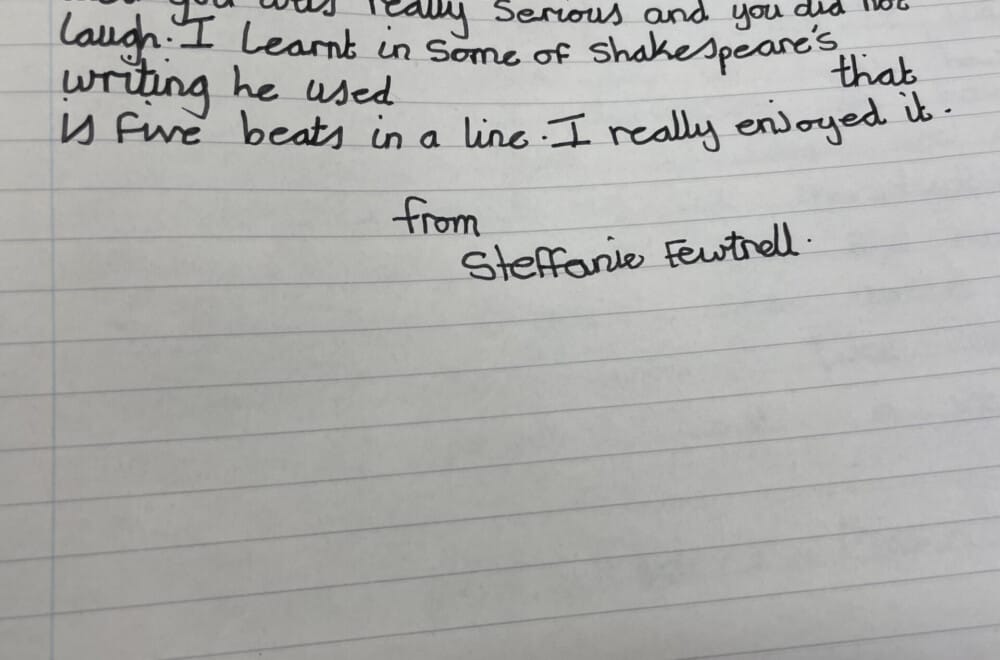 you was really serious and you did not
laugh. I Learnt in Some of Shakespeare's
writing he used that
is five beats in a line. I really enjoyed it.
from
Steffanie Fewtrell.